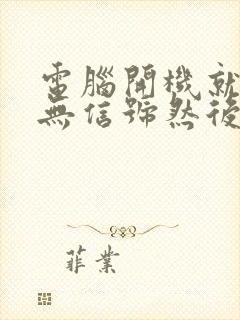 電腦開機就
無信號然後
菲業